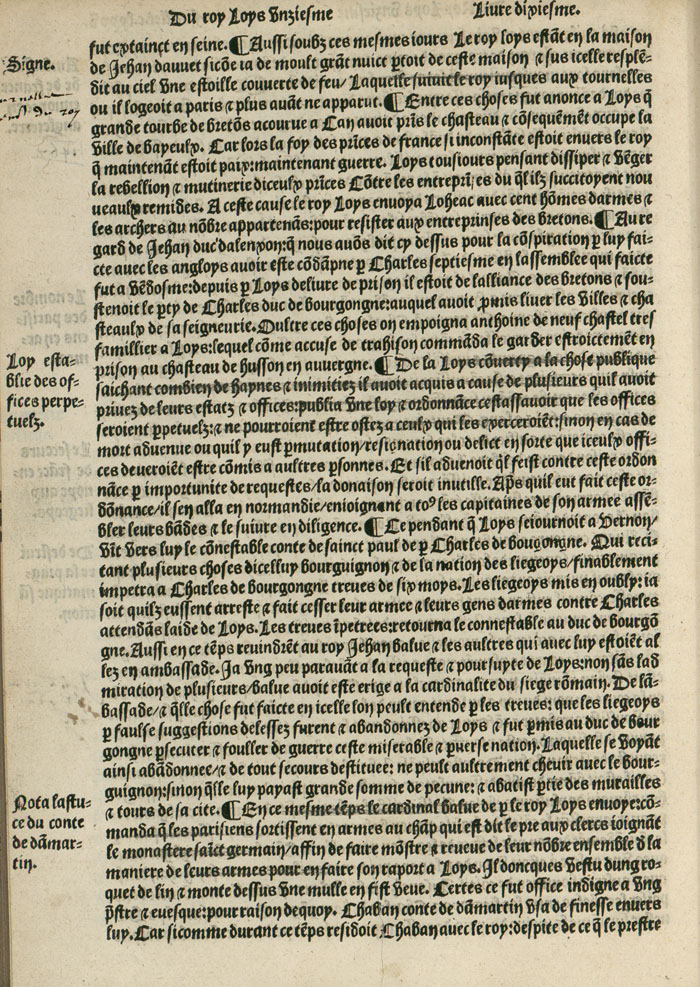 Du roy Loys Unziesme
Livre dixiesme.
fut extainct en seine. ¶ Aussi soubz ces mesmes iours Le roy loys estāt en la maison
Signe.
de Jehan dauvet sicōe ia de moult grāt nuict ꝑtoit de ceste maison ⁊ sus icelle resplē-
dit au ciel une estoille couverte de feu/ Laquelle suivit le roy iusques aux tournelles
ou il logeoit a paris ⁊ plus avāt ne apparut. ¶ Entre ces choses fut anonce a Loys q̄
grande tourbe de bretōs acourue a Can avoit prīs le chasteau ⁊ cōsequēmēt occupe la
ville de bayeulx. Car lors la foy des prīces de france si inconstāte estoit envers le roy
q̄ maintenāt estoit paix: maintenant guerre. Loys tousiours pensant dissiper ⁊ vēger
la rebellion ⁊ mutinerie diceulx prīces Cōtre les entreprī;es du q̄l ilz succitoyent nou
veaulx remides. A ceste cause le roy Loys envoya Loheac avec cent hōmes darmes ⁊
les archers au nōbre appartenās: pour resister aux entreprinses des bretons. ¶ Au re
gard de Jehan duc dalenxon: q̄ nous avōs dit cy dessus pour la cōspiration ꝑ luy fai-
cte avec les angloys avoir este cōdāpne ꝑ Charles septiesme en lassemblee qui faicte
fut a vēdosme: depuis ꝑ Loys delivre de prison il estoit de lalliance des bretons ⁊ sou-
stenoit le ꝑty de Charles duc de bourgongne: auquel avoit ꝓmis livrer les villes ⁊ cha
steaulx de sa seigneurie. Oultre ces choses on empoigna anthoine de neuf chastel tres
famillier a Loys: lequel cōme accuse de trahison commāda le garder estroictement en
Loy esta-
blie des of-
fices perpe-
tuelz.
prison au chasteau de husson en auvergne. ¶ De la Loys cōverty a la chose publique
saichant combien de haynes ⁊ inimitiez il avoit acquis a cause de plusieurs quil avoit
privez de leurs estatz ⁊ offices: publia une loy ⁊ ordonnāce cestassavoir que les offices
seroient ꝑpetuelz: ⁊ ne pourroient estre ostez a ceulx qui les exerceroiēt: sinon en cas de
mort advenue ou quil y eust ꝑmutation/ resignation ou delict en sorte que iceulx offi-
ces deveroiēt estre cōmis a aultres ꝑsonnes. Et sil advenoit q̄l feist contre ceste ordon
nāce ꝑ importunite de requestes/ la donaison seroit inutille. Ap̄s quil eut fait ceste or-
dōnance/ il sen alla en normandie/ enioignant a toꝰ les capitaines de son armee assē-
bler leurs bādes ⁊ le suivre en diligence. ¶ Ce pendant q̄ Loys seiournoit a Vernon/
vīt vers luy le cōnestable conte de sainct paul de ꝑ Charles de bougongne. Qui reci-
tant plusieurs choses dicelluy bourguignon ⁊ de la nation des liegeoys/ finablement
impetra a Charles de bourgongne treves de six moys. Les liegeoys mis en oubly: ia
soit quilz eussent arreste ⁊ fait cesser leur armee ⁊ leurs gens darmes contre Charles
attendās laide de Loys. Les treves īpetrees: retourna le connestable au duc de bourgō
gne. Aussi en ce tēps revindrēt au roy Jehan balue ⁊ les aultres qui avec luy estoiēt al
lez en ambassade. Ja ung peu paravāt a la requeste ⁊ poursuyte de Loys: non sās lad
miration de plusieurs/ balue avoit este erige a la cardinalite du siege rōmain. De lā-
bassade/ ⁊ q̄lle chose fut faicte en icelle lon peult entendre ꝑ les treves: que les liegeoys
ꝑ faulse suggestions delessez furent ⁊ abandonnez de Loys ⁊ fut ꝑmis au duc de bour
gongne ꝑsecuter ⁊ fouller de guerre ceste miserable ⁊ ꝑverse nation. Laquelle se voyāt
ainsi abādonnee/ ⁊ de tout secours destituee: ne peult aultrement chevir avec le bour-
guignon: sinon q̄lle luy payast grande somme de pecune: ⁊ abatist ꝑtie des murailles
Nota lastu-
ce du conte
de dāmar-
tin.
⁊ tours de sa cite. ¶ En ce mesme tēps le cardinal balue de ꝑ le roy Loys envoye: cō-
manda q̄ les parisiens sortissent en armes au chāp qui est dit le pre aux clercs ioignāt
le monastere saīct germain/ affin de faire mōstre ⁊ reveue de leur nōbre ensemble ⁊ la
maniere de leurs armes pour en faire son raport a Loys. Il doncques vestu dung ro-
quet de lin ⁊ monte dessus une mulle en fist veue. Certes ce fut office indigne a ung
p̄stre ⁊ evesque: pour raison dequoy. Chaban conte de dāmartin usa de finesse envers
luy. Car sicomme durant ce tēps residoit Chaban avec le roy: despite de ce q̄ le prestre